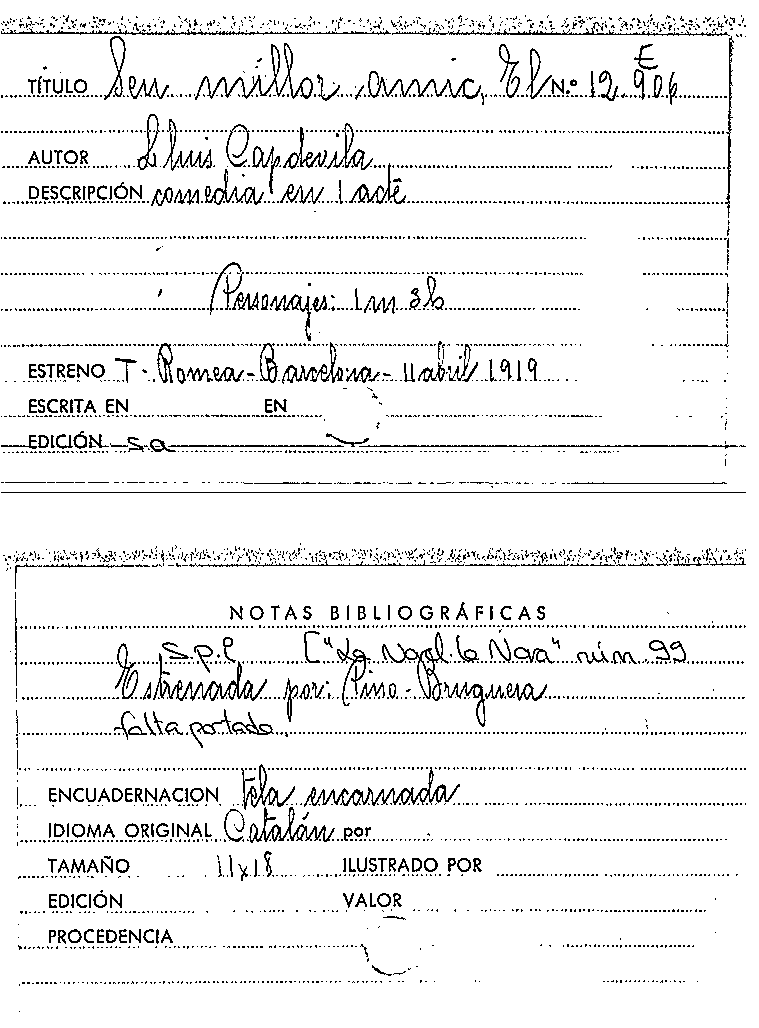 E
TÍTULO Seu millor amic, El N.º 12.906
AUTOR Lluis Capdevila
DESCRIPCIÓN comedia en 1 acte
Personajes: 1m 3h
ESTRENO T. Romea - Barcelona - 11 abril 1919
ESCRITA EN EN
EDICIÓN sa
NOTAS BIBLIOGRÁFICAS
S.p.l ["La Novel·la Nova" núm. 99
Estrenada por: Pino - Bruguera
falta portada.
ENCUADERNACION tela encarnada
IDIOMA ORIGINAL Catalán por
TAMAÑO 11x18 ILUSTRADO POR
EDICIÓN VALOR
PROCEDENCIA